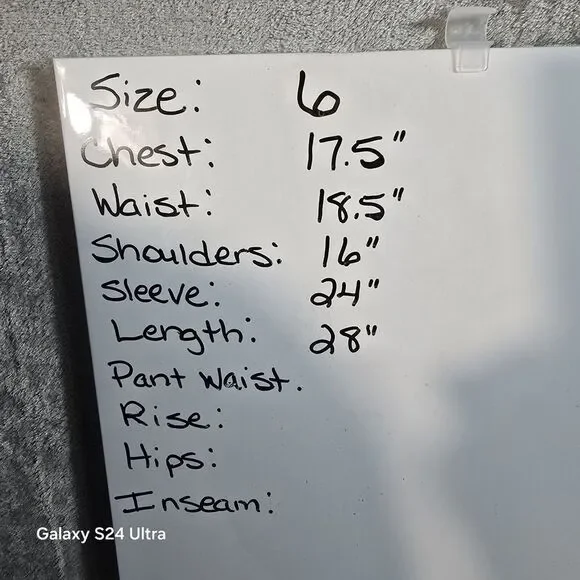 Size: 6
Chest: 17.5"
Waist: 18.5"
Shoulders: 16"
Sleeve: 24"
Length: 28"
Pant Waist.
Rise:
Hips:
Inseam:
Galaxy S24 Ultra